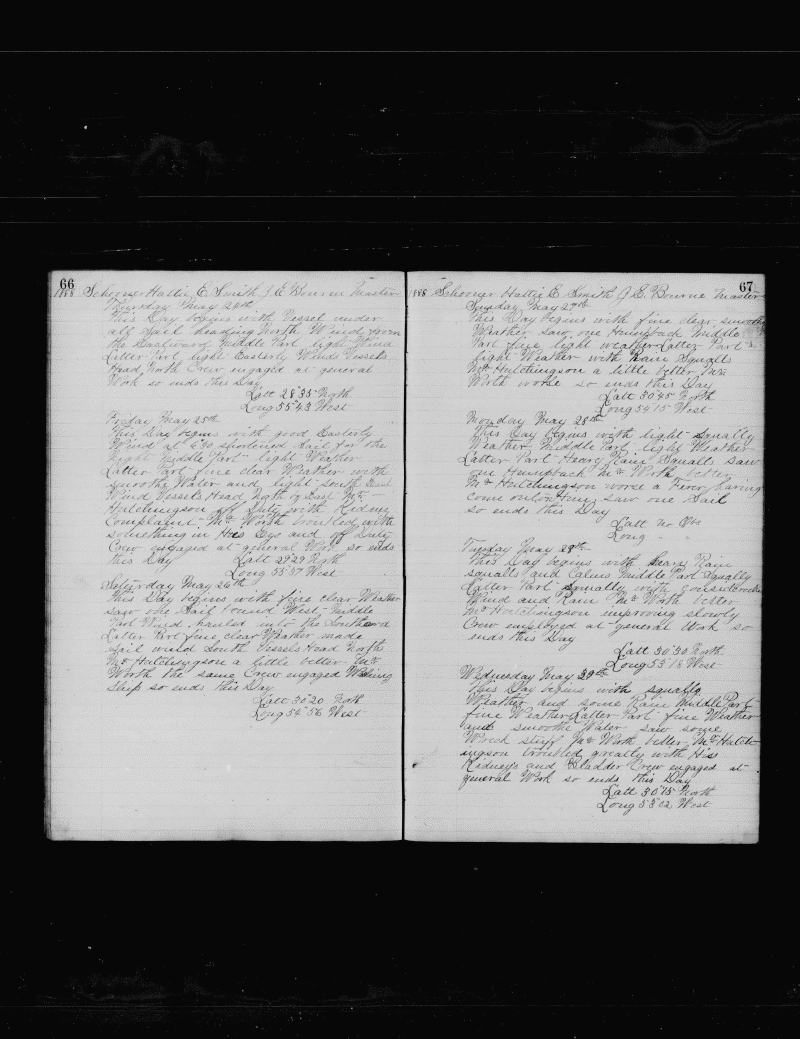 66
1888 Schooner Hattie E. Smith J. E. Bourne Master
Thursday May 24th
This Day begins with Vessel under
all Sail heading North Wind from
the Eastward Middle Part light Wind
Latter Part light Easterly Winds Vessels
Head North Crew engaged at general
Work so ends this Day
Latt 28°35 North
Long 55°43 West
Friday May 25th
This Day begins with good Easterly
Wind at 6.30 shortened Sail for the
Night Middle Part light Weather
Latter Part fine clear Weather with
smoothe Water and light South East
Wind Vessels Head North by East Mr
Hutchingson off Duty with Kidney
Complaint Mr Worth troubled with
something in Hies Eys and off Duty
Crew engaged at general Work so ends
this Day Latt 29°29 North
Long 55°37 West
Saturday May 26th
This Day begins with fine clear Weather
saw one Sail bound West Middle
Part Wind hauled into the Southerd
Latter Part fine clear Weather made
Sail wind South Vessels Head North
Mr Hutchingson a little better Mr
Worth the same Crew engaged Washing
Ship so ends this Day
Latt 30°20 North
Long 54°56 West
67
1888 Schooner Hattie E Smith J. E. Bourne Master
Sunday May 27th
This Day begins with fine clear smoothe
Weather saw one Humpbach Middle
Part fine light weather Latter Part
light Weather with Rain Squalls
Mr Hutchingson a little better Mr
Worth worse so ends this Day
Latt 30°45 North
Long 54°15 West
Monday May 28th
This Day begins with light Squally
Weather Middle Part light Weather
Latter Part Heavy Rain Squalls saw
one Humpback Mr Worth better
Mr Hutchingson worse a Fever having
come on Him saw one Sail
so ends this Day
Latt No Obs
Long " "
Tuesday May 29th
This Day begins with Heavy Rain
squalls and Calms Middle Part Squally
Latter Part Squally with considerable
Wind and Rain Mr Worth better
Mr Hutchingson improving slowly
Crew employed at general Work so
ends this Day
Latt 30°30 North
Long 53°18 West
Wednesday May 30th
This Day begins with squally
Weather and some Rain Middle Part
fine Weather Latter Part fine Weather
and smoothe Water saw some
Wreck stuff Mr Worth better Mr Hutch
ingson troubled greatly with His
Kidneys and Bladder Crew engaged at
general Work so ends this Day
Latt 30°15 North
Long 53°02 West